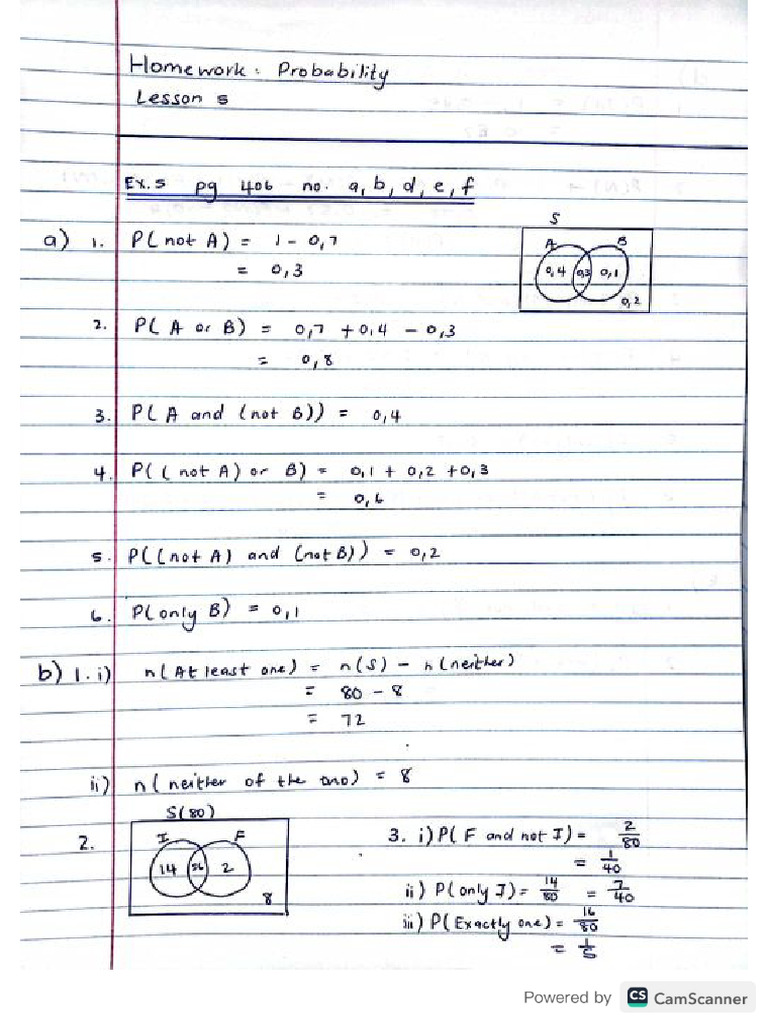 Homework: Probability
Lesson 5
Ex.5 pg 406 no. a, b, d, e, f
a) 1. P(not A) = 1 - 0,7
= 0,3
S
A B
0,4 0,3 0,1
0,2
2. P(A or B) = 0,7 + 0,4 - 0,3
= 0,8
3. P(A and (not B)) = 0,4
4. P((not A) or B) = 0,1 + 0,2 + 0,3
= 0,6
5. P((not A) and (not B)) = 0,2
6. P(only B) = 0,1
b) 1. i) n(At least one) = n(S) - n(neither)
= 80 - 8
= 72
ii) n(neither of the two) = 8
2. S(80)
I F
14 56 2
8
3. i) P(F and not I) = 2/80
= 1/40
ii) P(only I) = 14/80 = 7/40
iii) P(Exactly one) = 16/80
= 1/5
Powered by CS CamScanner